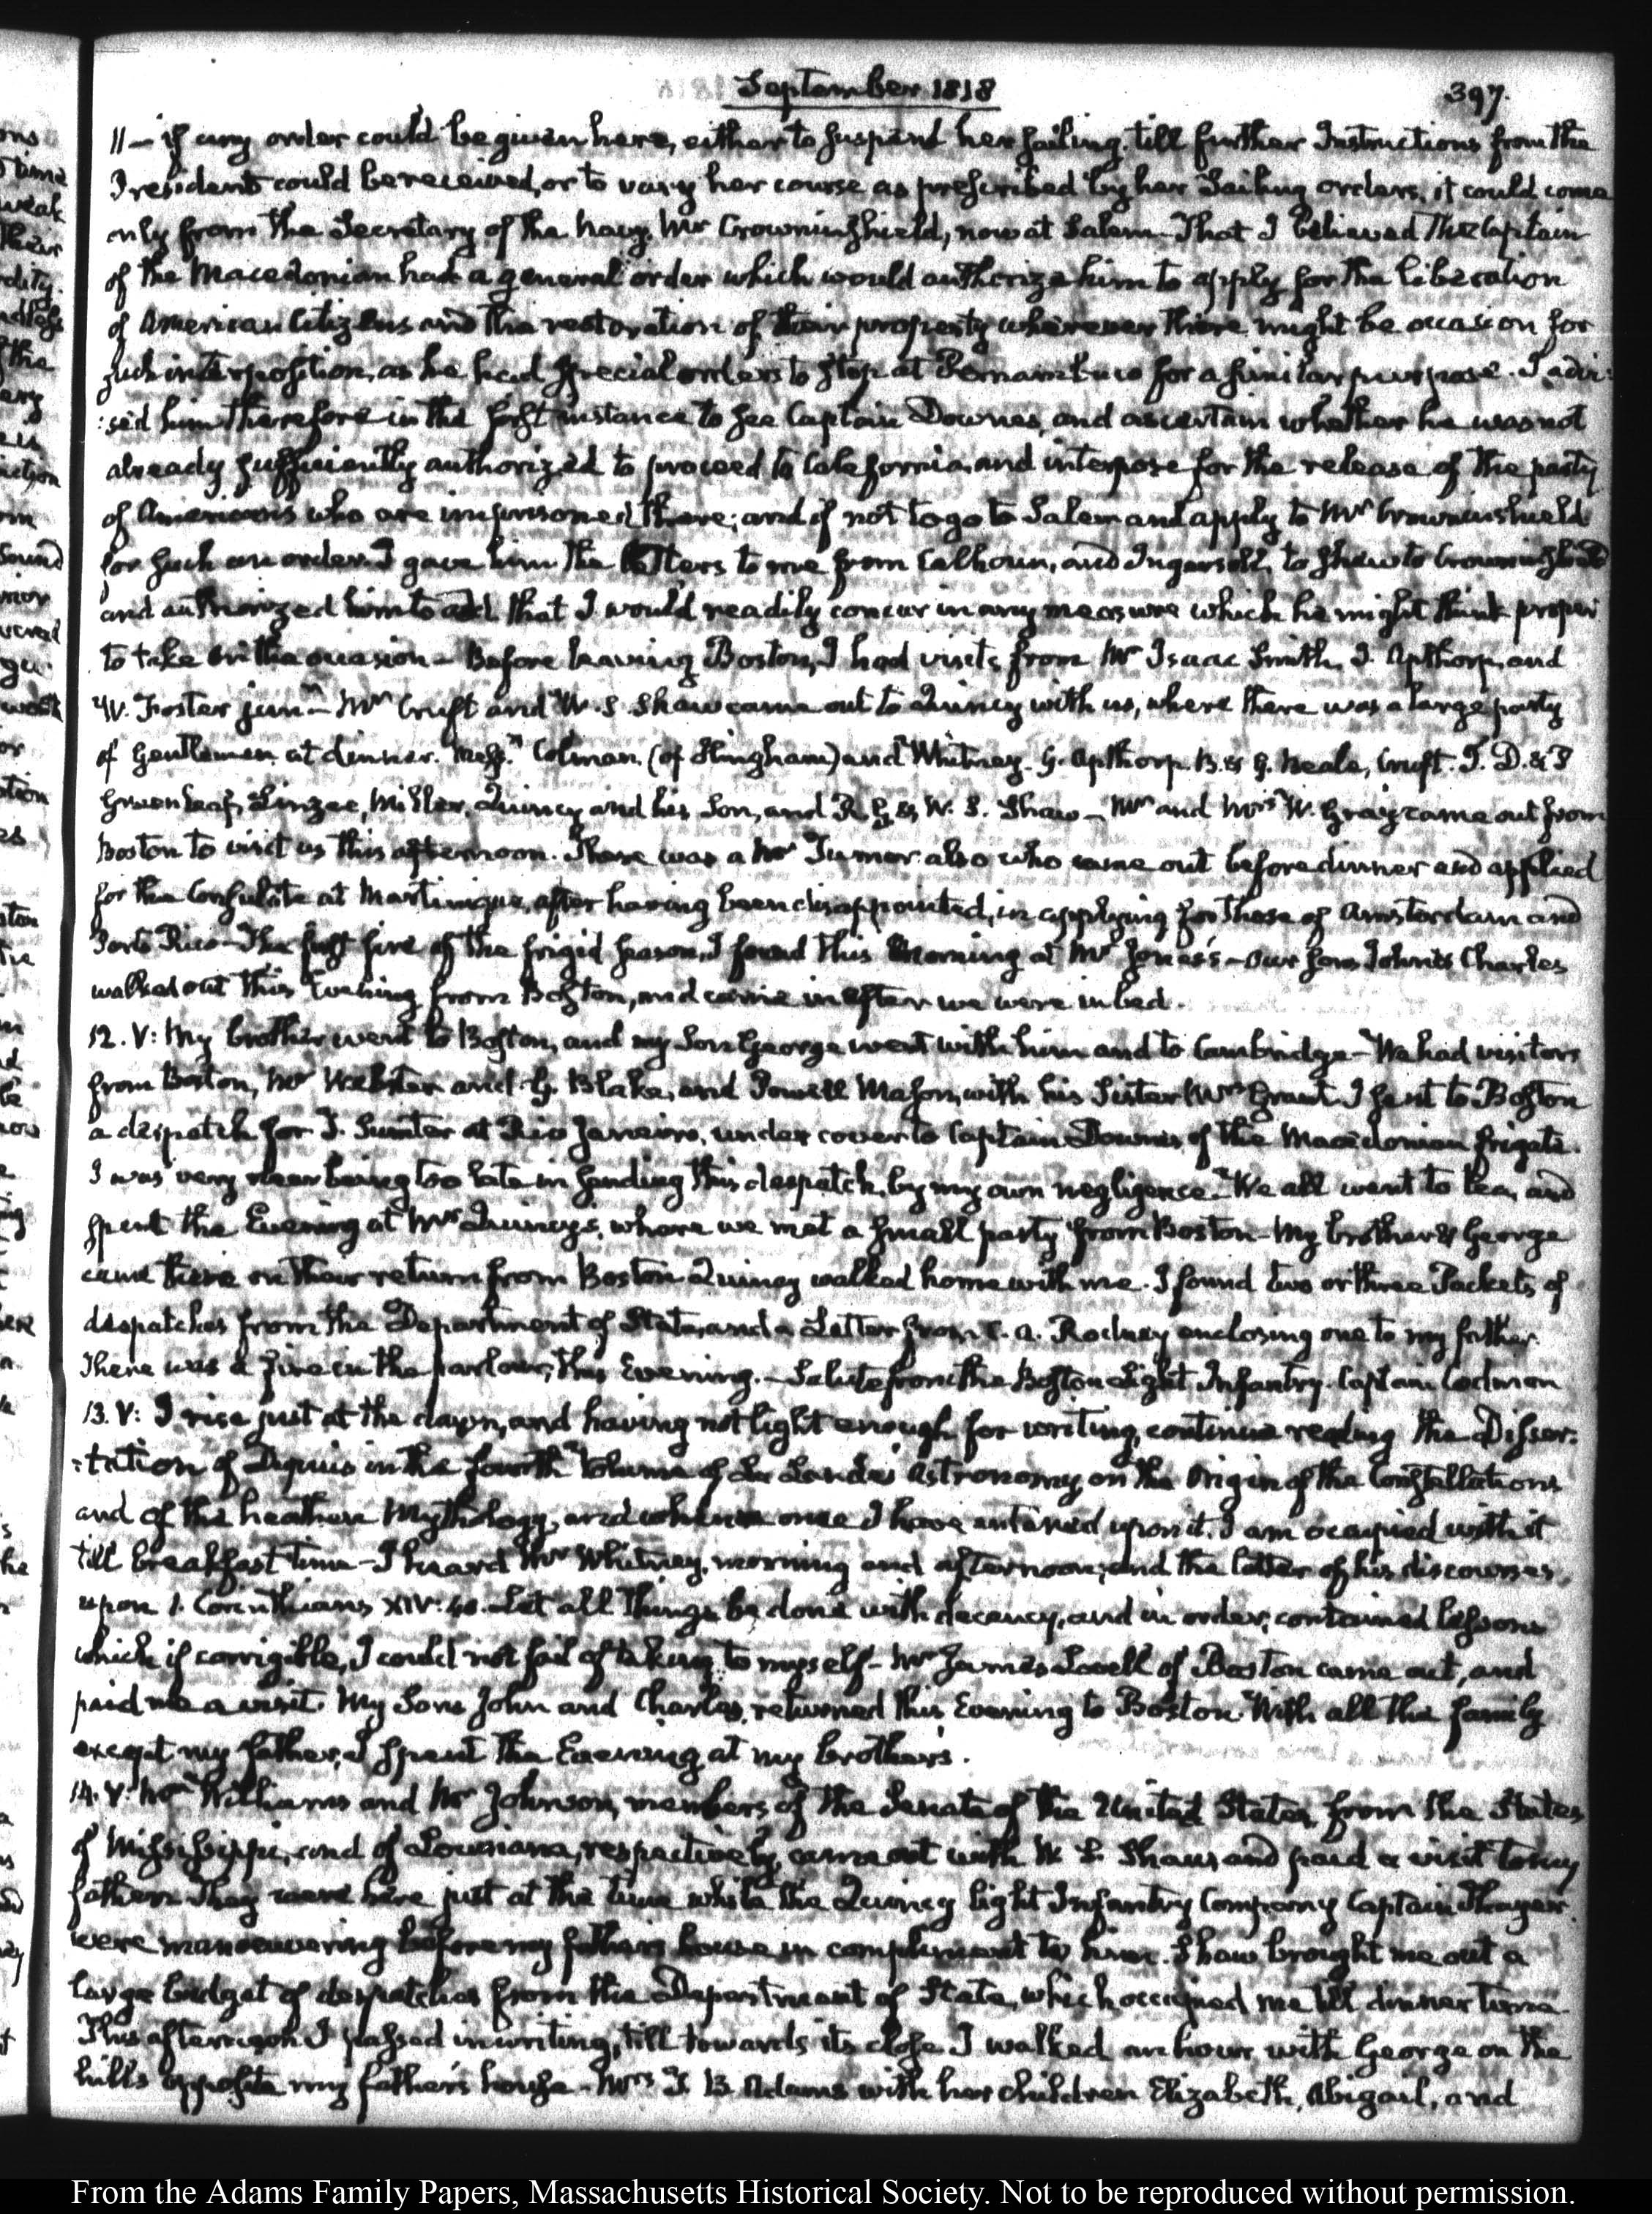 September 1818
397.
11 — if any order could be given here, either to suspend her sailing, till further Instructions from the
President could be received, or to vary her course as prescribed by her Sailing orders, it could come
only from the Secretary of the Navy, Mr Crowninshield, now at Salem — That I believed the Captain
of the Macedonian had a general order which would authorize him to apply for the liberation
of American Citizens and the restoration of their property wherever there might be occasion for
such interposition, as he had special orders to stop at Pernambuco for a similar purpose. I advi:
:sed him therefore in the first instance to see Captain Downes, and ascertain whether he was not
already sufficiently authorized to proceed to California, and interpose for the release of the party
of Americans who are imprisoned there; and if not to go to Salem and apply to Mr Crowninshield
for such an order. I gave him the Letters to me from Calhoun, and Ingersoll, to shew to Crowninshield
and authorized him to add that I would readily concur in any measure which he might think proper
to take on the occasion — Before leaving Boston, I had visits from Mr Isaac Smith, J. Apthorp, and
W. Foster junr — Mr Cruft and W. S. Shaw came out to Quincy with us, where there was a large party
of Gentlemen at dinner. Messrs Colman (of Hingham) and Whitney. G. Apthorp. B. & G. Beale, Cruft. T. D. & P
Greenleaf, Linzee, Miller, Quincy and his Son, and R. G. & W. S. Shaw — Mr and Mrs W. Gray came out from
Boston to visit us this afternoon. There was a Mr Turner also who came out before dinner and applied
for the Consulate at Martinique, after having been disappointed, in applying for those of Amsterdam and
Porto Rico — The first fire of the frigid season, I found this Morning at Mr Jones's — Our sons John & Charles
walked out this Evening from Boston, and came in after we were in bed.
12. V: My brother went to Boston, and my Son George went with him and to Cambridge — We had visitors
from Boston, Mr Webster and G. Blake, and Powell Mason, with his Sister Mrs Grant. I sent to Boston
a despatch for T. Sumter at Rio Janeiro, under cover to Captain Downes of the Macedonian frigate.
I was very near being too late in sending this despatch, by my own negligence — We all went to tea, and
spent the Evening at Mrs Quincy's, where we met a small party from Boston — My brother & George
came there on their return from Boston. Quincy walked home with me. I found two or three Packets of
despatches from the Department of State, and a Letter from C. A. Rodney enclosing one to my father.
There was a fire in the parlour, this Evening. — Salute from the Boston Light Infantry. Captain Codman
13. V: I rise just at the dawn, and having not light enough for writing, continue reading the Disser:
:tation of Dupuis in the fourth Volume of La Lande's Astronomy, on the Origin of the Constellations
and of the heathen Mythology, and when once I have entered upon it, I am occupied with it
till breakfast time — I heard Mr Whitney, morning and afternoon; and the latter of his discourses,
upon 1. Corinthians XIV: 40. Let all things be done with decency, and in order, contained lessons
which if corrigible, I could not fail of taking to myself — Mr James Lovell of Boston came out, and
paid me a visit. My Sons John and Charles, returned this Evening to Boston. With all the family
except my father, I spent the Evening at my brother's.
14. V: Mr Williams and Mr Johnson, members of the Senate of the United States, from the States
of Mississippi, and of Louisiana, respectively, came out with W. S. Shaw, and paid a visit to my
father. They were here just at the time while the Quincy light Infantry Company Captain Thayer
were manoeuvering before my father's house in compliment to him. Shaw brought me out a
large budget of despatches from the Department of State, which occupied me till dinner time.
This afternoon I passed in writing, till towards its close I walked an hour with George on the
hills opposite my father's house — Mrs T. B. Adams with her children Elizabeth, Abigail, and
From the Adams Family Papers, Massachusetts Historical Society. Not to be reproduced without permission.